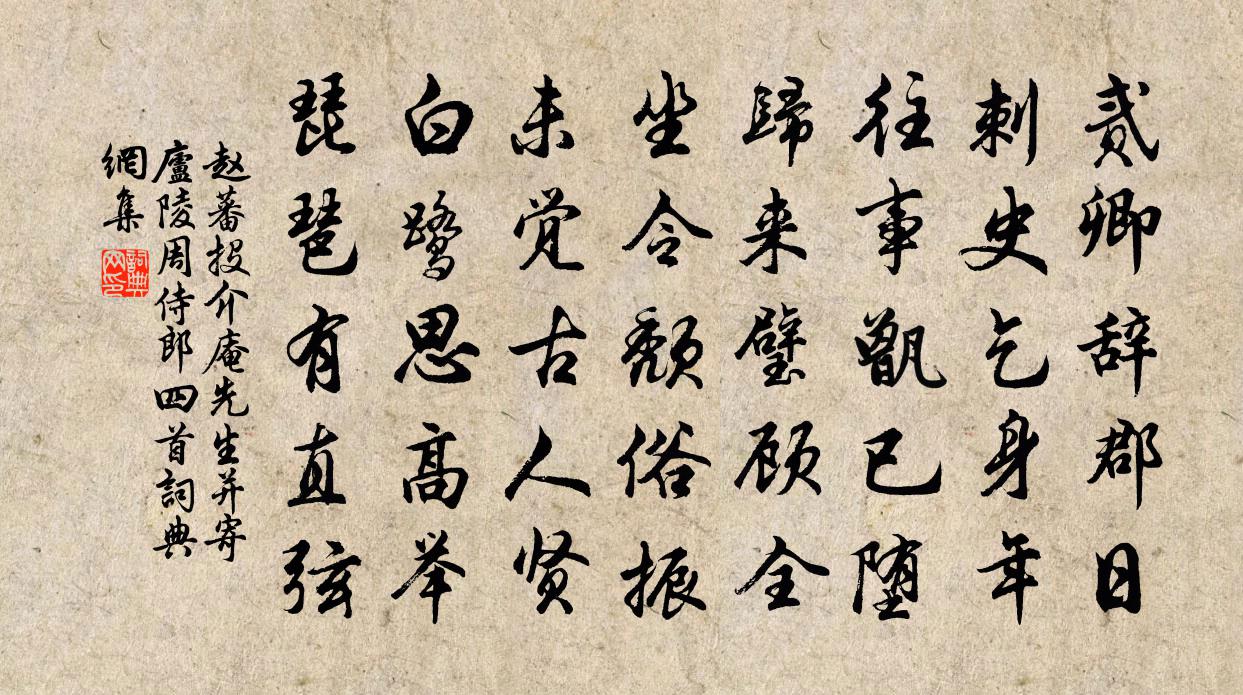 贰卿辞郡日
刺史乞身年
往事甑已堕
歸来璧顾全
坐令颓俗振
未觉古人贤
白鹭思高举
琵琶有直弦
赵蕃投介庵先生并寄
廬陵周侍郎四首詞典
網集
詞典
网印